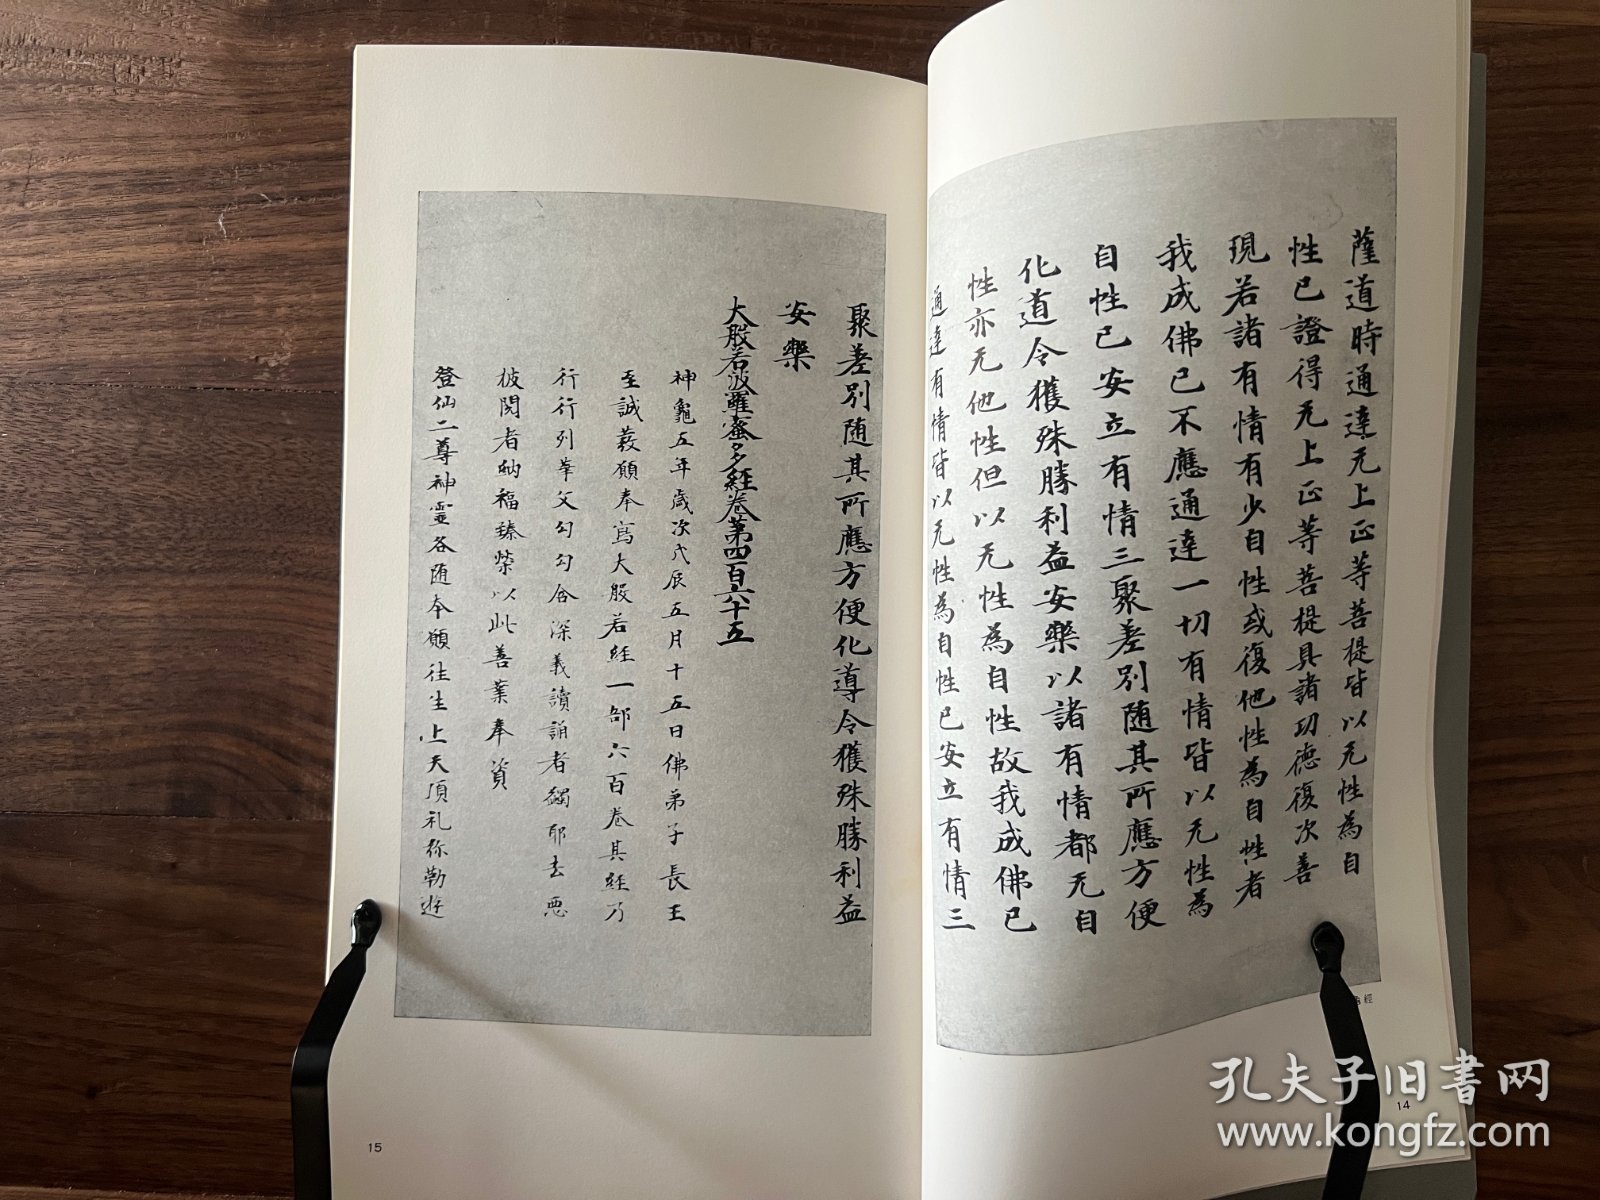 薩道時通達无上正等菩提皆以无性為自
性已證得无上正等菩提具諸功德復次善
現若諸有情有少自性或復他性為自性者
我成佛已不應通達一切有情皆以无性為
自性已安立有情三聚差別随其所應方便
化道令獲殊勝利益安樂以諸有情都无自
性亦无他性但以无性為自性故我成佛已
通達有情皆以无性為自性已安立有情三
經
14
聚差別随其所應方便化導令獲殊勝利益
安樂
大般若波羅蜜多經卷第四百六十五
神龜五年歲次戊辰五月十五日佛弟子長王
至誠發願奉寫大般若経一部六百卷其経乃
行行列華文勾勾含深義讀誦者蠲耶去惡
披閱者納福臻榮以此善業奉資
登仙二尊神靈各随本願往生上天頂礼弥勒遊
15
孔夫子旧書网
www.kongfz.com